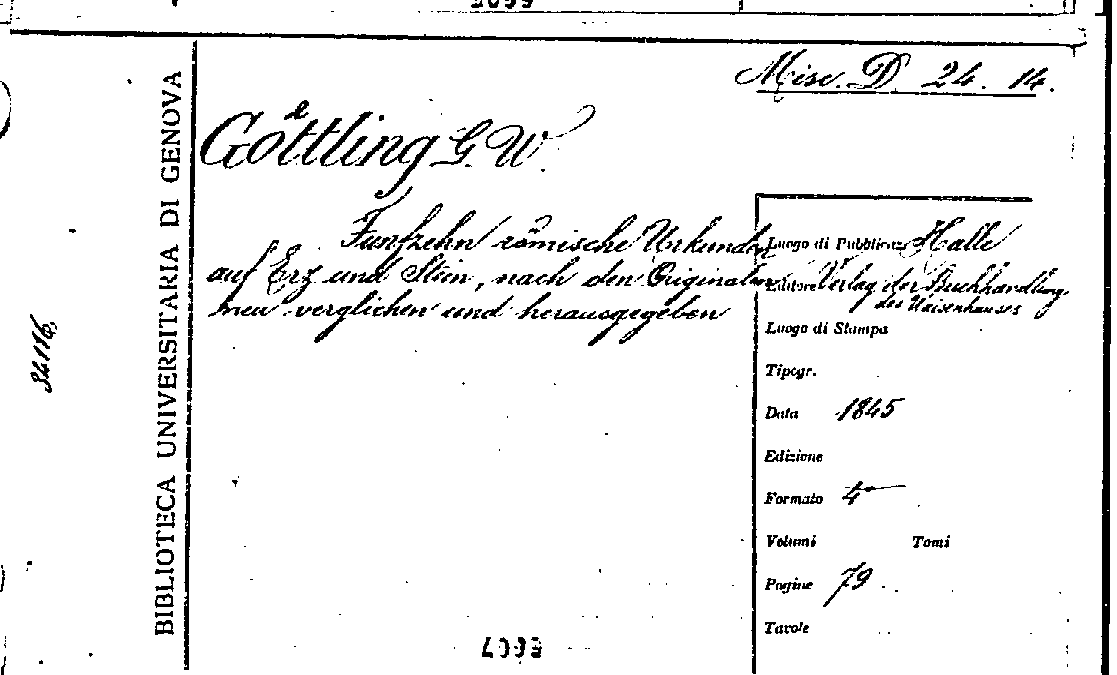 Misc. D. 24. 14.
BIBLIOTECA UNIVERSITARIA DI GENOVA
34116
Göttling G. W.
Funfzehn römische Urkunden
auf Erz und Stein, nach den Originalen
neu verglichen und herausgegeben
Luogo di Pubblicaz. Halle
Editore Verlag der Buchhandlung
des Waisenhauses
Luogo di Stampa
Tipogr.
Data 1845
Edizione
Formato 4°
Volumi Tomi
Pagine 79
Tavole